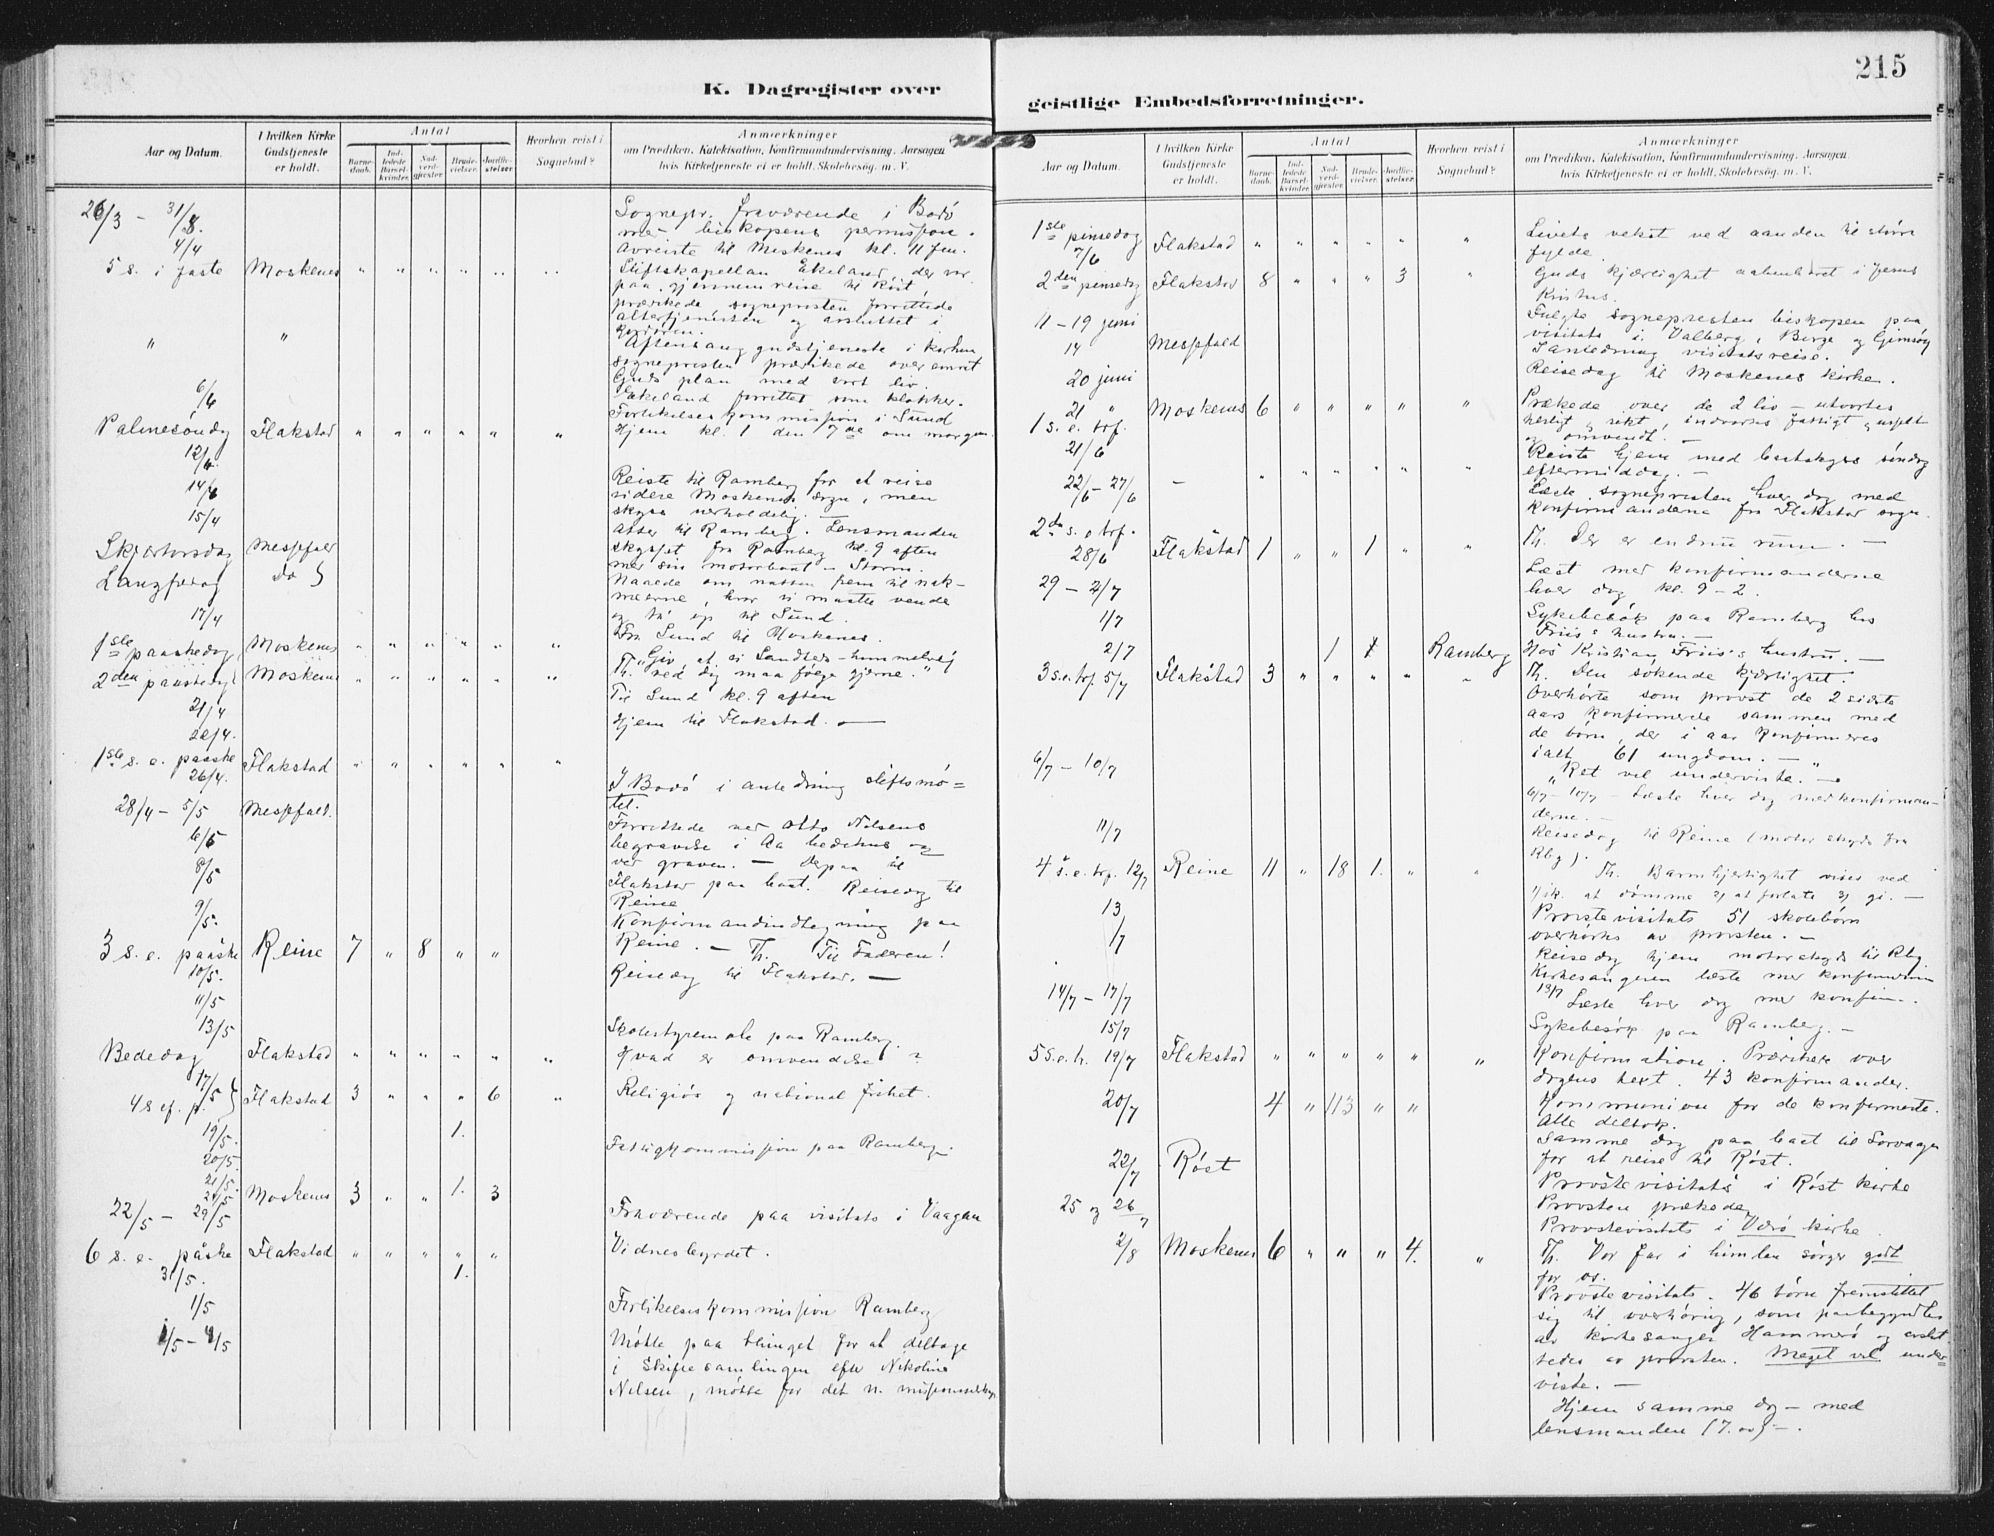 215
K. Dagregister over
geistlige Embedsforretninger.
Aar og Datum.
I hvilken Kirke
Gudstjeneste
er holdt.
Antal
Barne-
daab.
Ind-
ledede
Barsel-
kvinder.
Nad-
verd-
gjæster.
Brude-
vielser.
Jordfæ-
stelser.
Hvorhen reist i
Sognebud?
Anmærkninger
om Prædiken, Katekisation, Konfirmandundervisning, Aarsagen
hvis Kirketjeneste ei er holdt, Skolebesøg. m. V.
26/3 – 31/3. Sognepr. fraværende i Bodø
med biskopens permission.
4/4 Avreiste til Moskenes kl. 11 fm.
5 s. i faste Moskenes " " " " " " Stiftskapellan Ekeland, der var
paa gjennemreise til Røst,
prækede, sognepresten forrettede
altertjenesten og avsluttet i
kordøren.
" " Aftensang gudstjeneste i kirken
sognepresten prækede over emnet
Guds plan med vort liv.
Ekeland forrettet som klokker.
6/4 Forlikelseskommission i Sund
Palmesøndag Flakstad " " " " " " Hjem kl. 1 den 7de om morgen.
12/4.
14/4 Reiste til Ramberg for at reise
videre Moskenes sogn, men
15/4 skyss uerholdelig. –
Atter til Ramberg. Lensmanden
Skjærtorsdag Mesfjord skysset fra Ramberg kl. 9 aften
Langfredag Do } med sin motorbaat – Storm.
Naaede om natten frem til nak-
merne, hvor vi maatte vende
17/4 og ta op til Sund.
1ste paaskedag Moskenes " " " " " " Fra Sund til Moskenes.
2den paaskedag Moskenes " " " " " " "Giv at vi
Th. ved dig maa følge gjerne."
21/4 Til Sund kl. 9 aften
22/4. Hjem til Flakstad. –
1ste s. e. paaske
26/4. Flakstad " " " " " "
28/4 – 5/5 I Bodø i anledning stiftsmø-
tet.
6/5 Forrettede ved Otto Nilsens
begravelse i Aa bedehus og
8/5 ved graven. – Derpaa til
Flakstad paa baat. Reisedag til
9/5. Reine
Konfirmandindtegning paa
3 s. e. paaske Reine 7 " 8 " " Reine. – Th. Til Faderen!
10/5.
11/5 Reisedag til Flakstad. –
13/5 Skolestyremøte paa Ramberg.
Bededag Flakstad " " " " " " Hvad er omvendelse?
17/5 }
4 s. ef. p. Flakstad 3 " " " 6 " Religiøs og national frihet.
19/5. 1.
20/5. Fatigkommission paa Ramberg.
21/5.
Moskenes 3 " " 1. 3
22/5 – 29/5 Fraværende paa visitats i Vaagan
6 s. e. påske Flakstad " " " " " Vidnesbyrdet.
31/5. 1.
1/5 Forlikelseskommission Ramberg
Møtte paa thinget for at deltage
i skiftesamlingen efter Nikoline
Nilsen, møtte for det n. missionsselsk.
Aar og Datum.
I hvilken Kirke
Gudstjeneste
er holdt.
Antal
Barne-
daab.
Ind-
ledede
Barsel-
kvinder.
Nad-
verd-
gjæster.
Brude-
vielser.
Jordfæ-
stelser.
Hvorhen reist i
Sognebud?
Anmærkninger
om Prædiken, Katekisation, Konfirmandundervisning, Aarsagen
hvis Kirketjeneste ei er holdt, Skolebesøg. m. V.
1ste pinsedag
7/6 Flakstad " " " " " " Livets vekst ved aanden til større
fylde.
2den pinsedag Flakstad 8 " " " 3 " Guds kjærlighet aabenbaret i Jesus
Kristus.
11 – 19 juni Fulgte sognepresten biskopen paa
visitats i Valberg, Borge og Gimsøy
14 I anledning visitatsreise.
20 juni Reisedag til Moskenes kirke.
21 " Moskenes 6 " " " " " Prækede over de 2 liv – utvortes
1 s. e. trf. herligt og rikt, indvortes fattigt og uselt
og omvendt. –
21/6 Reiste hjem med søndag
eftermiddag. –
22/6 – 27/6 – Læste sognepresten hver dag med
konfirmanderne fra Flakstad sogn.
2den s. o trf.
28/6 Flakstad 1 " " 1 " " Th. Der er endnu rum. –
29 – 2/7 Læst med konfirmanderne
hver dag kl. 9 – 2.
1/7 Sykebesøk paa Ramberg hos
Friis's hustru. –
2/7 1 Ramberg Hos Kristian Friis's hustru. –
3 s. e. trf. 5/7 Flakstad 3 " " " " " Th. Den søkende kjærlighet.
Overhørte som provst de 2 sidste
aars konfirmerede sammen med
de børn, der i aar konfirmeres
ialt 61 ungdom. –
"Ret vel underviste." –
6/7 – 10/7 6/7 – 10/7 – Læste hver dag med konfirman-
derne. –
11/7 Reisedag til Reine (motorskyds fra
Rbg).
4 s. e. trf. 12/7 Reine 11 " 18 1. " " Th. Barmhjertighet vises ved
ik. at dømme 2) at forlate 3) gi. –
13/7 Provstevisitats 51 skolebørn
overhørtes av provsten. –
Reisedag hjem motorskyds til Rbg
Kirkesangeren læste med konfirmandern
13/7
14/7 – 17/7 Læste hver dag med konfirm.
15/7 Sykebesøk paa Ramberg. –
5 s. e. tr. 19/7 Flakstad " " " " " " Konfirmation. Prækede over
dagens text. 43 konfirmander.
20/7 4 " 113 " " Kommunion for de konfirmerte.
Alle deltok.
Samme dag paa baat til Sørvaagen
22/7 Røst for at reise til Røst.
Provstevisitats i Røst kirke
25 og 26/7 Provsten prækede.
Provstevisitats i Værø kirke.
2/8 Moskenes 6 " " " 4. " Th. Vor far i himlen sørger godt
for os.
Provstevisitats. 46 børn fremstillet
sig til overhøring, som paabegyndtes
av kirkesanger Hammerø og avslut-
tedes av provsten. Meget vel under-
viste. –
Hjem samme dag – med
lensmanden (7.00) –.